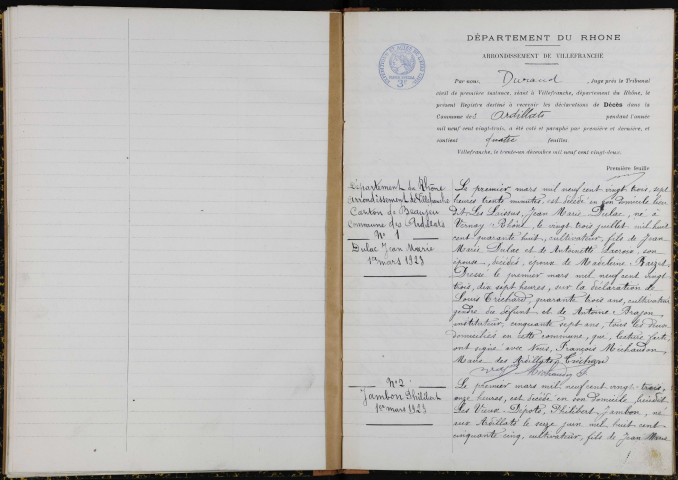 DÉPARTEMENT DU RHONE
ARRONDISSEMENT DE VILLEFRANCHE
Par nous, Durand, Juge près le Tribunal
civil de première instance, séant à Villefranche, département du Rhône, le
présent Registre destiné à recevoir les déclarations de Décès dans la
Commune des Ardillats pendant l'année
mil neuf cent vingt-trois, a été coté et paraphé par première et dernière, et
contient quatre feuilles.
Villefranche, le trente-un décembre mil neuf cent vingt-deux.
Première feuille
Département du Rhône
Arrondissement de Villefranche
Canton de Beaujeu
Commune des Ardillats
N° 1
Dulac Jean Marie
1er mars 1923
Le premier mars mil neuf cent vingt trois, sept
heures trente minutes, est décédé en son domicile lieu
dit, Jean Marie Dulac, né à
Vernay, Rhône, le vingt trois juillet mil huit
cent quarante huit, cultivateur, fils de Jean
Marie Dulac et de Antoinette son
épouse, décédés, époux de Madeleine
Dressé le premier mars mil neuf cent vingt
trois, dix sept heures, sur la déclaration de
Louis Trichard, quarante trois ans, cultivateur
gendre du défunt et de Antoine
instituteur, cinquante sept ans, tous les deux
domiciliés en cette commune, qui, lecture faite,
ont signé avec Nous, François Michaudon
Maire des Ardillats. Trichard
Michaudon F.
N° 2
Jambon Philibert
1er mars 1923
Le premier mars mil neuf cent vingt trois,
onze heures, est décédé en son domicile lieudit
Les Vieux, Philibert Jambon, né
aux Ardillats le juin mil huit cent
cinquante cinq, cultivateur, fils de Jean Marie